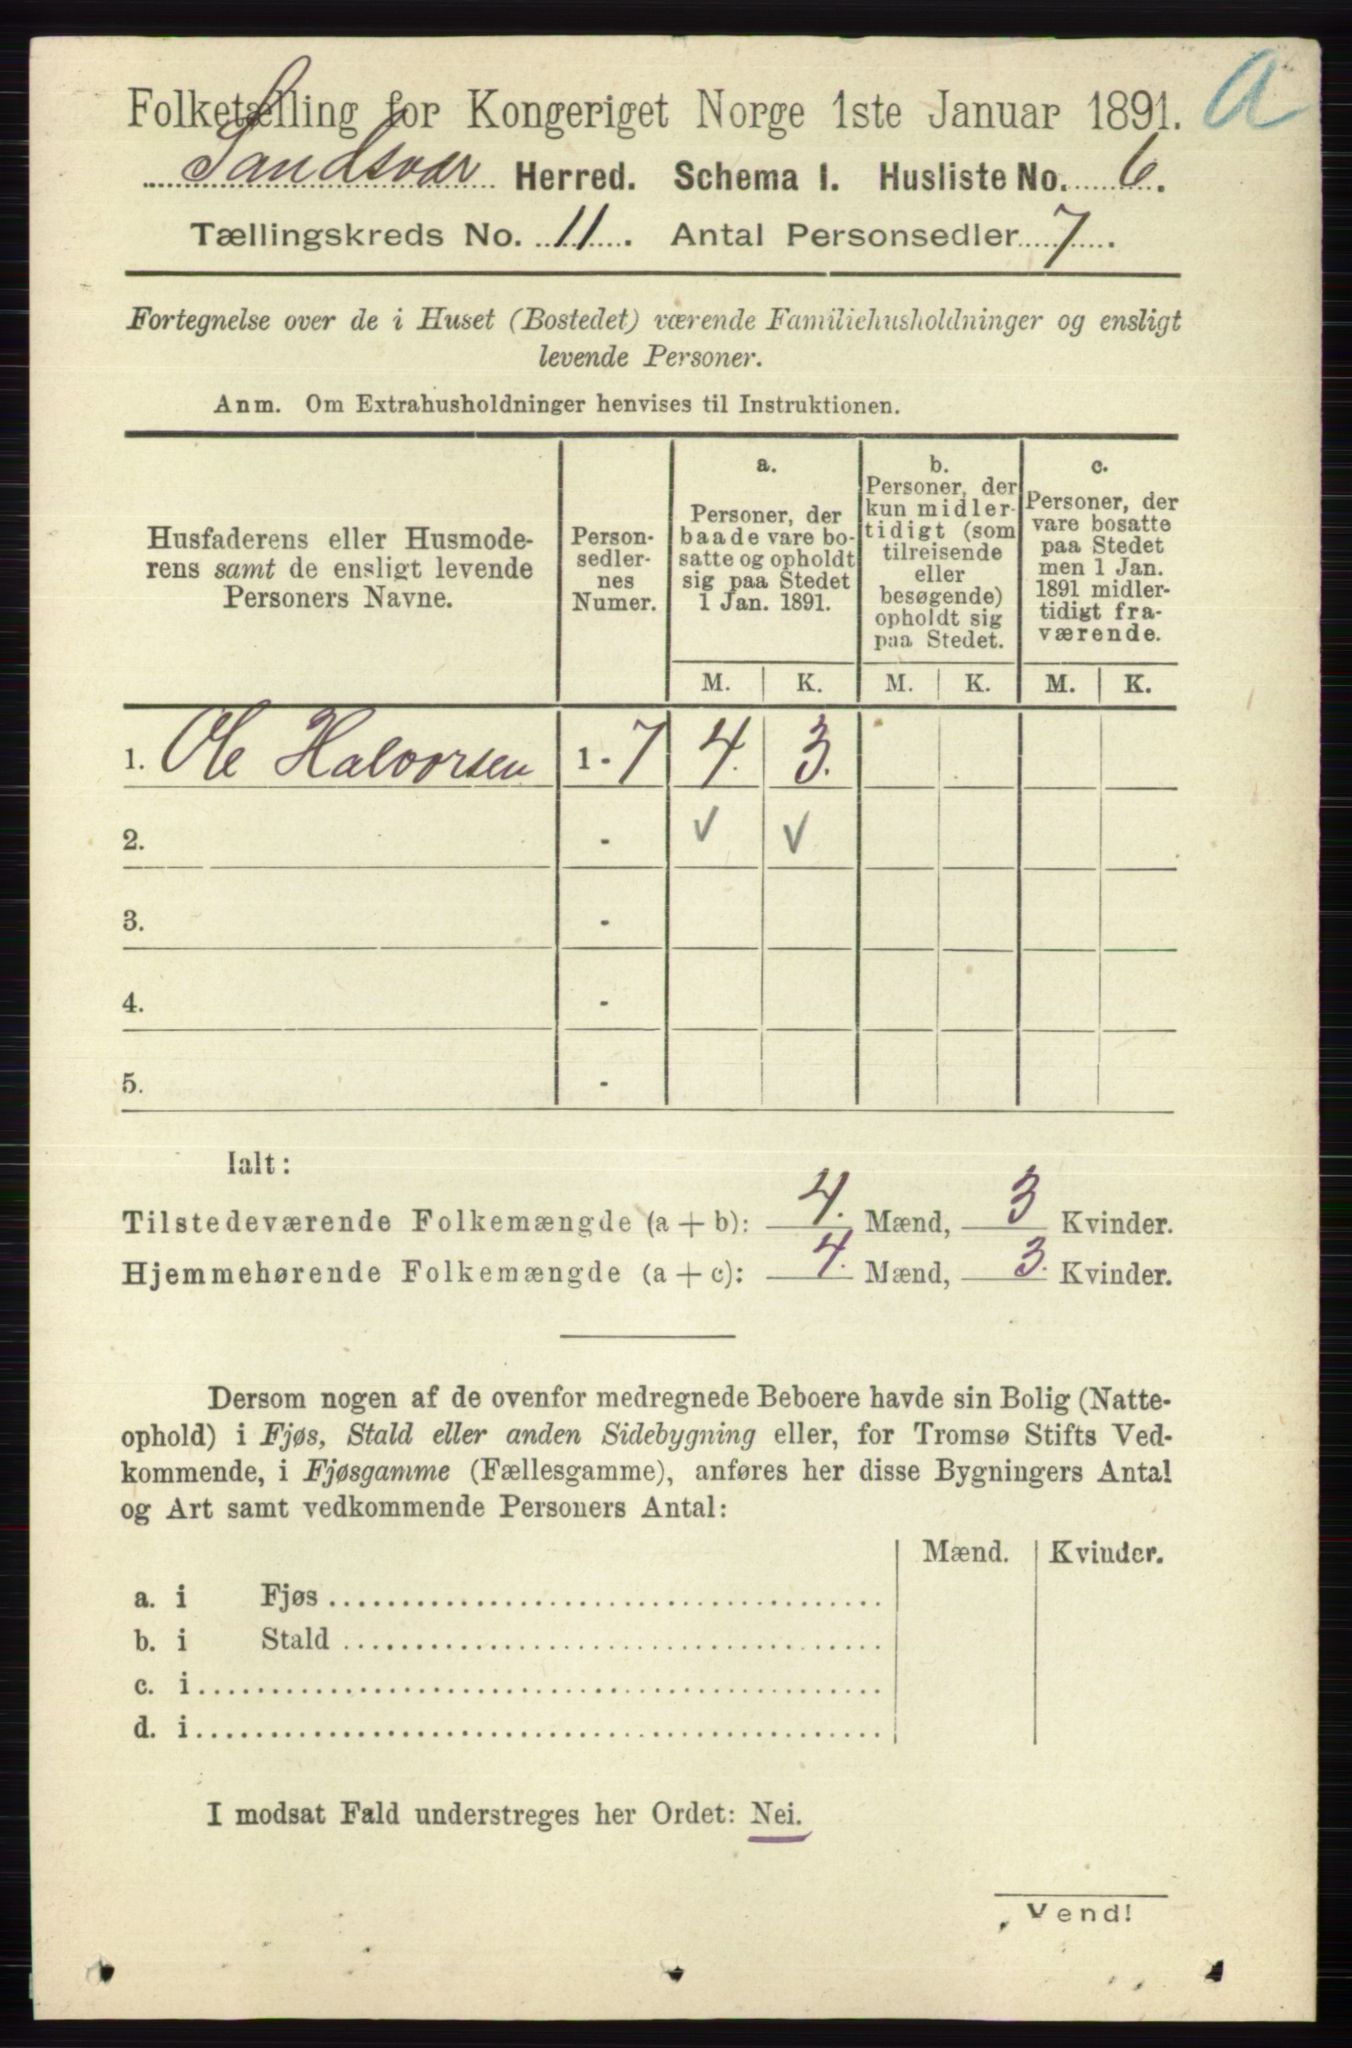 a
Folketælling for Kongeriget Norge 1ste Januar 1891.
Sandsvær Herred. Schema I. Husliste No. 6.
Tællingskreds No. 11. Antal Personsedler 7.
Fortegnelse over de i Huset (Bostedet) værende Familiehusholdninger og ensligt
levende Personer.
Anm. Om Extrahusholdninger henvises til Instruktionen.
Husfaderens eller Husmode-
rens samt de ensligt levende
Personers Navne.
Person-
sedler-
nes
Numer.
a.
Personer, der
baade vare bo-
satte og opholdt
sig paa Stedet
1 Jan. 1891.
b.
Personer, der
kun midler-
tidigt (som
tilreisende
eller
besøgende)
opholdt sig
paa Stedet.
c.
Personer, der
vare bosatte
paa Stedet
men 1 Jan.
1891 midler-
tidigt fra-
værende.
M. K. M. K. M. K.
1. Ole Halvorsen 1 - 7 4. 3.
2. - ✓ ✓
3. -
4. -
5. -
Ialt:
Tilstedeværende Folkemængde (a + b): 4. Mænd, 3 Kvinder.
Hjemmehørende Folkemængde (a + c): 4. Mænd, 3. Kvinder.
Dersom nogen af de ovenfor medregnede Beboere havde sin Bolig (Natte-
ophold) i Fjøs, Stald eller anden Sidebygning eller, for Tromsø Stifts Ved-
kommende, i Fjøsgamme (Fællesgamme), anføres her disse Bygningers Antal
og Art samt vedkommende Personers Antal:
Mænd. Kvinder.
a. i Fjøs
b. i Stald
c. i
d. i
I modsat Fald understreges her Ordet: Nei.
Vend!